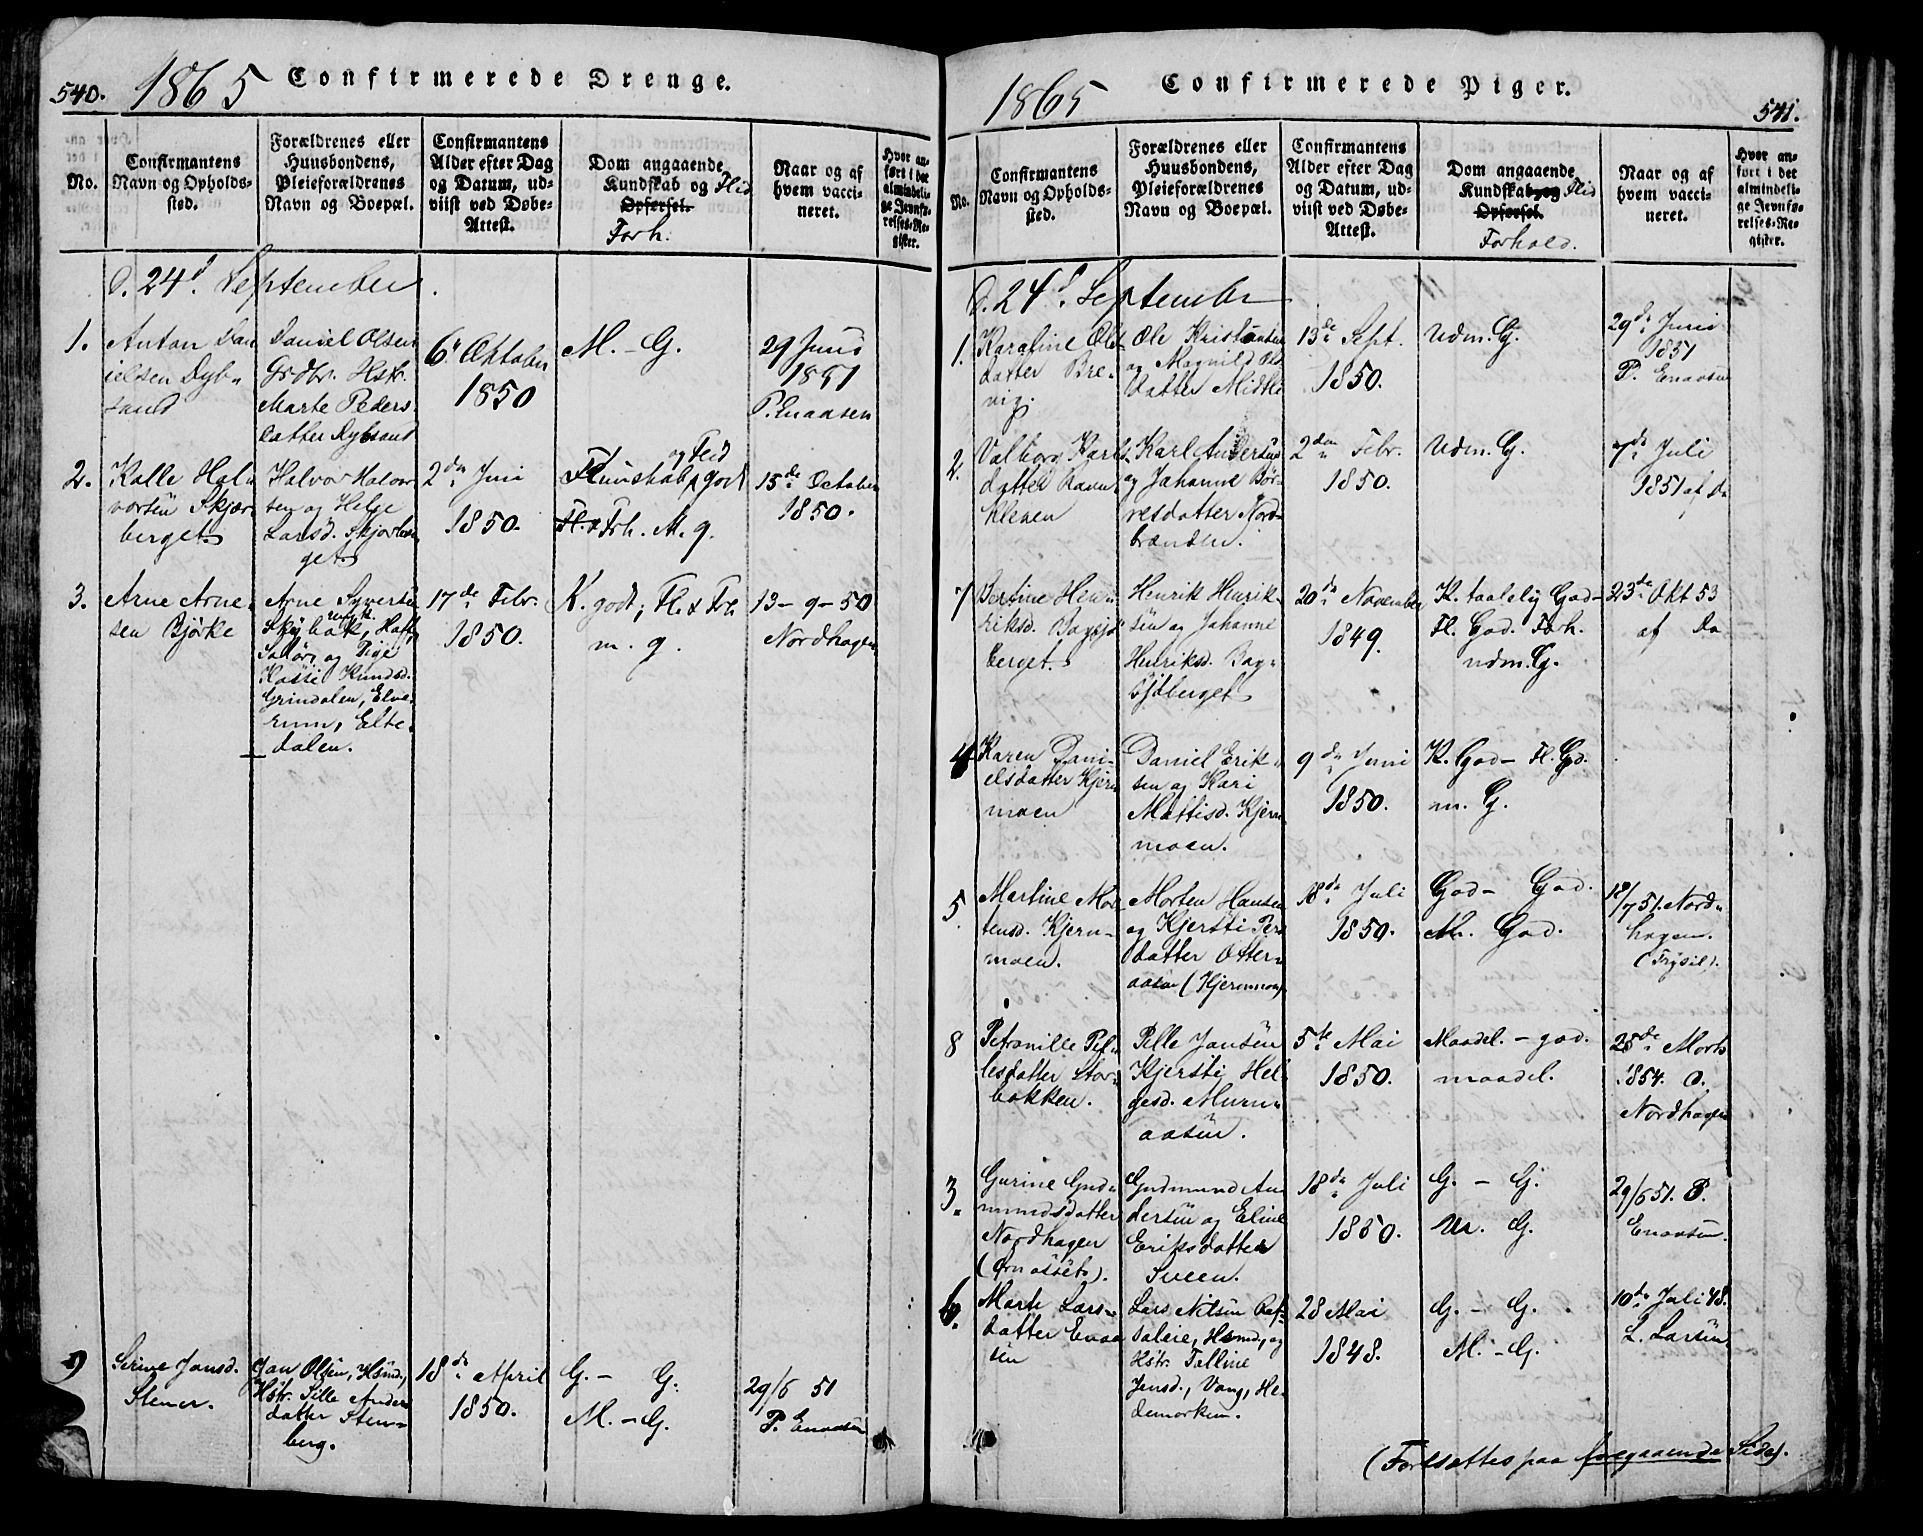 540.
1865
Confirmerede Drenge.
No.
Confirmantens
Navn og Opholds-
sted.
Forældrenes eller
Huusbondens,
Pleieforældrenes
Navn og Boepæl.
Confirmantens
Alder efter Dag
og Datum, ud-
viist ved Døbe-
Attest.
Dom angaaende
Kundskab og Flid
Opførsel.
Forh.
Naar og af
hvem vacci-
neret.
Hvor an-
ført i det
almindeli-
ge Jevnfø-
relses-Re-
gister.
d. 24d. September.
1.
Anton Dan
ielsen Dyb-
sand
Daniel Olsen
Grdbr. Hstr.
Marte Peders-
datter Dybsand
6te Oktober
1850
M. - G.
29 Juni
1851
P. Enaasen
2.
Kalle Hal-
vorsen Skjær-
berget.
Halvor Halvor-
sen og Helge
Larsd. Skjærber-
get.
2den Juni
1850.
og Flid
Kunskab godt
Fl. & Frh. M. g.
15de October
1850.
3.
Arne Arne-
sen Bjørke
Arne Syversen
Skybak, Hoff,
Solør, og Pige
Kasti Knudsd.
Grindalen, Elve-
rum, Elte-
dalen.
17de Febr.
1850.
K. godt, Fl. & Frh.
m. g.
13-9-50
Nordhagen
9
Serine Jansd.
Stener.
Jan Olsen, Hsmd,
Hstr. Sille Anders
datter Sten-
berg.
18de April
1850.
G. - G.
M. - G.
29/6 51
P. Enaasen
1865
Confirmerede Piger.
541.
No.
Confirmantens
Navn og Opholds-
sted.
Forældrenes eller
Huusbondens,
Pleieforældrenes
Navn og Boepæl.
Confirmantens
Alder efter Dag
og Datum, ud-
viist ved Døbe-
Attest.
Dom angaaende
Kundskab og Flid
Opførsel.
Forhold.
Naar og af
hvem vacci-
neret.
Hvor an-
ført i det
almindeli-
ge Jevnfø-
relses-Re-
gister.
d. 24d. September
1.
Karoline Ols-
datter Bre-
vig.
Ole Kristiansen
og Magnild Ols
datter Midtki
13de Sept.
1850.
Udm. G.
29de Juni
1851
P. Enaasen
2.
Valborg Karls-
datter Ravn-
kleven
Karl Andersen
og Johanne Bør-
resdatter Nord-
brænden.
2den Febr.
1850.
Udm. G.
7de Juli
1851 af Do
7
Bertine Hen-
riksd. Bagsjø
berget.
Henrik Henrik-
sen og Johanne
Henriksd. Bag-
sjøberget
20de November
1849.
K. taalelig God-
Fl. God. Forh.
udm. G.
23de Okt 53
af Do
4
Karen Dani-
elsdatter Kjern
moen
Daniel Erik-
sen og Kari
Mattisd. Kjern-
moen.
9de Juni
1850.
K. God - Fl. Gd.
m. G.
5.
Martine Mor-
tensd. Kjern-
moen.
Morten Hansen
og Kjersti Pers
datter Otter-
aasen (Kjernmoen)
18de Juli
1850.
God - God.
M. God.
12/7 51. Nord-
hagen.
(Trysil).
8
Petronille Pel-
lesdatter Stor-
bakken.
Pelle Jansen
Kjersti Hel-
gesd. Muru-
aasen.
5te Mai
1850.
Maadel. - god.
maadel.
25de Marts
1854. O.
Nordhagen
3.
Gurine Gud-
mundsdatter
Nordhagen
(Ørnåsset).
Gudmund An
dersen og Eline
Eriksdatter
Sveen.
18de Juli
1850.
G. - G.
M. G.
29/6 51. P.
Enaasen.
6.
Marte Lars-
datter Enaa
sen
Lars Nilsen Raf-
daleie, Hsmd, og
Hstr. Talline
Jensd., Vang, He-
demarken.
28 Mai
1848.
G. - G.
M. - G.
10de Juli 48.
L. Larsen
(Fortsættes paa foregaaende Side).